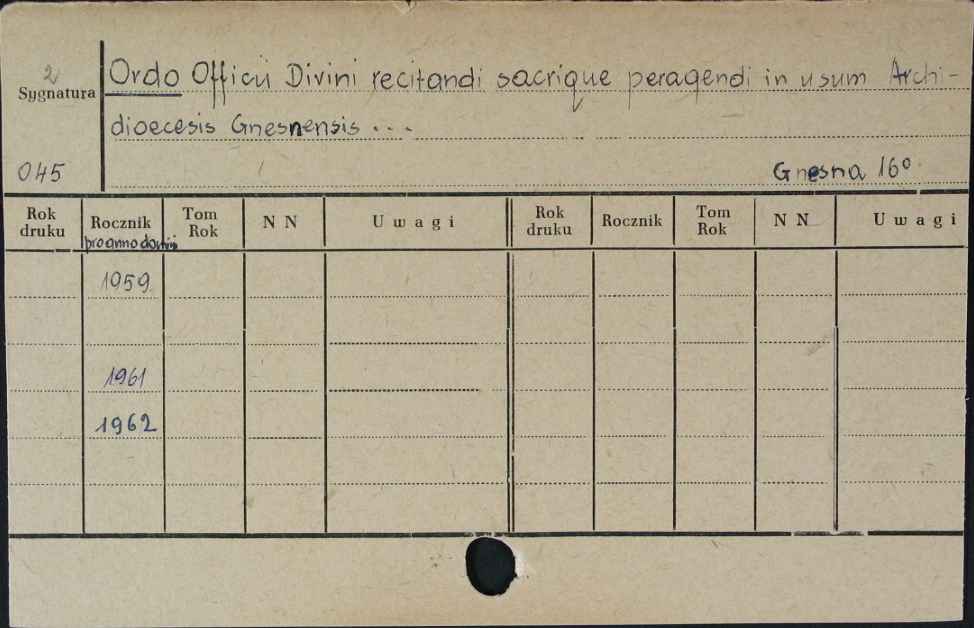 2
Sygnatura
045
Ordo Officii Divini recitandi sacrique peragendi in usum Archi-
dioecesis Gnesnensis ...
Gnesna 16°
Rok druku Rocznik Tom Rok N N Uwagi Rok druku Rocznik Tom Rok N N Uwagi
pro anno domini
1959
1961
1962